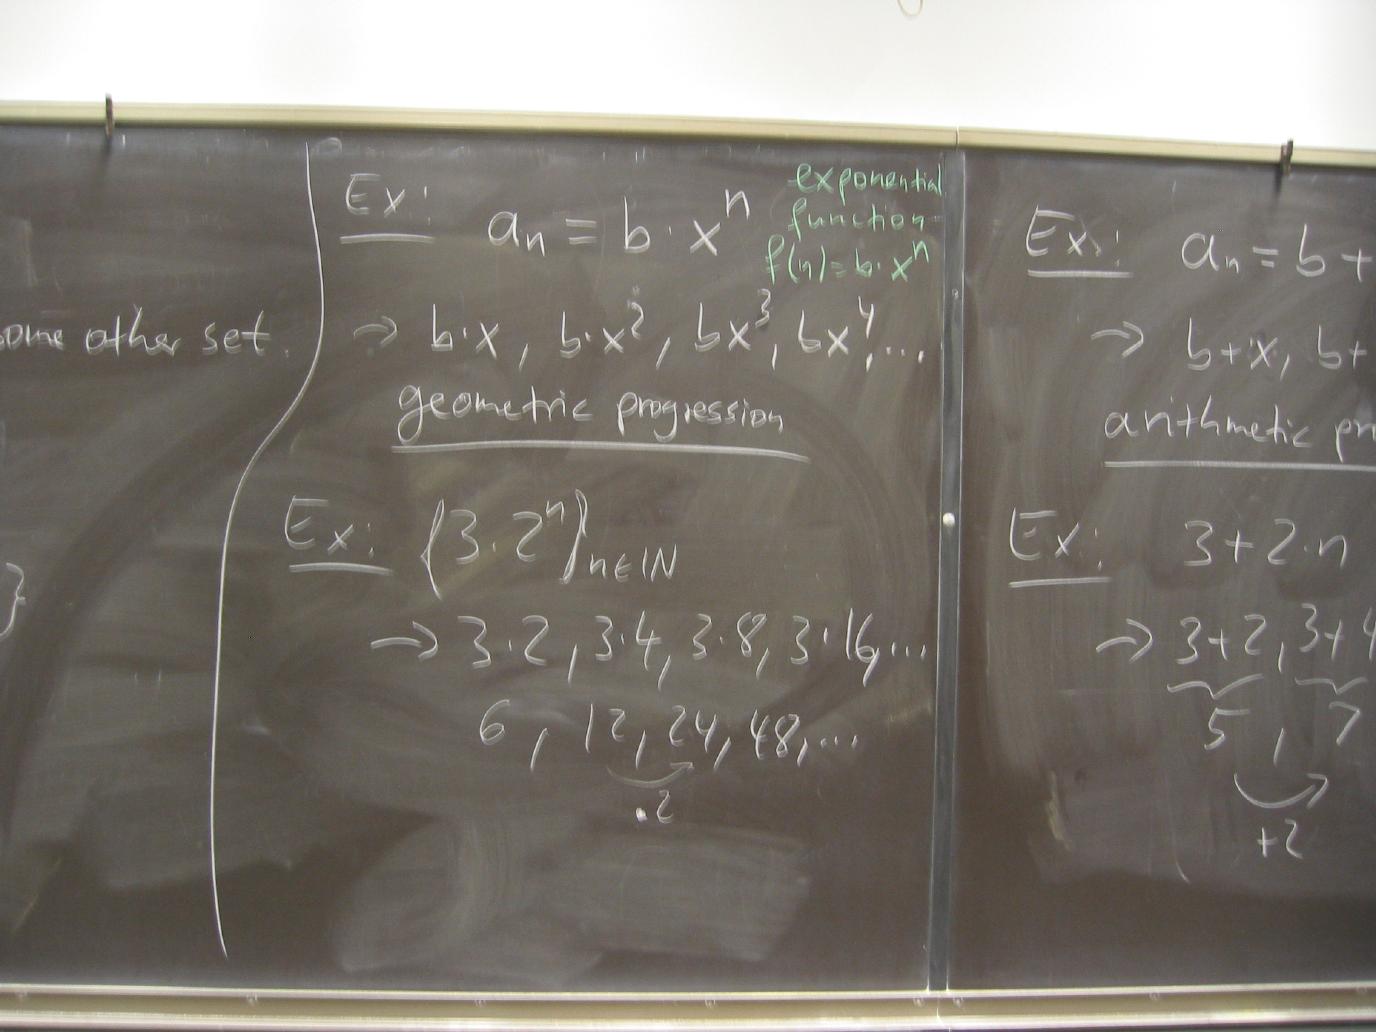 some other set.
}
Ex: aₙ = b · xⁿ
exponential
function
f(n)=b·xⁿ
→ b·x, b·x², bx³, bx⁴, ...
geometric progression
Ex: {3·2ⁿ}ₙ∈ℕ
→ 3·2, 3·4, 3·8, 3·16, ...
6, 12, 24, 48, ...
·2
Ex: aₙ = b +
→ b+x, b+
arithmetic pr
Ex: 3+2·n
→ 3+2, 3+4
5, 7
+2